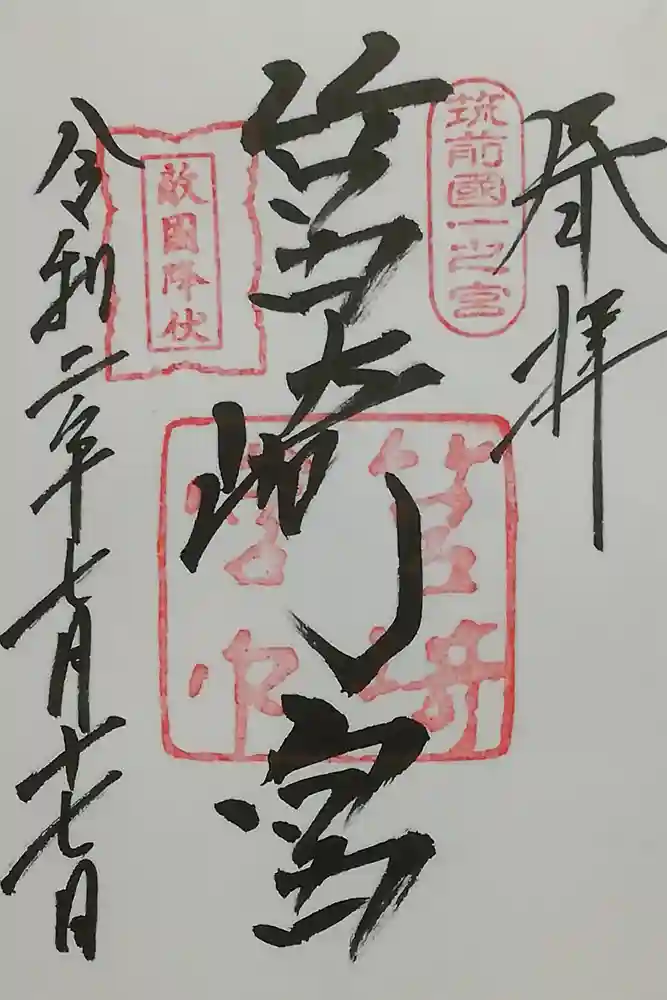 奉拝
筑前國一之宮
筥崎宮
筥崎
宮印
敵國降伏
令和二年七月十七日